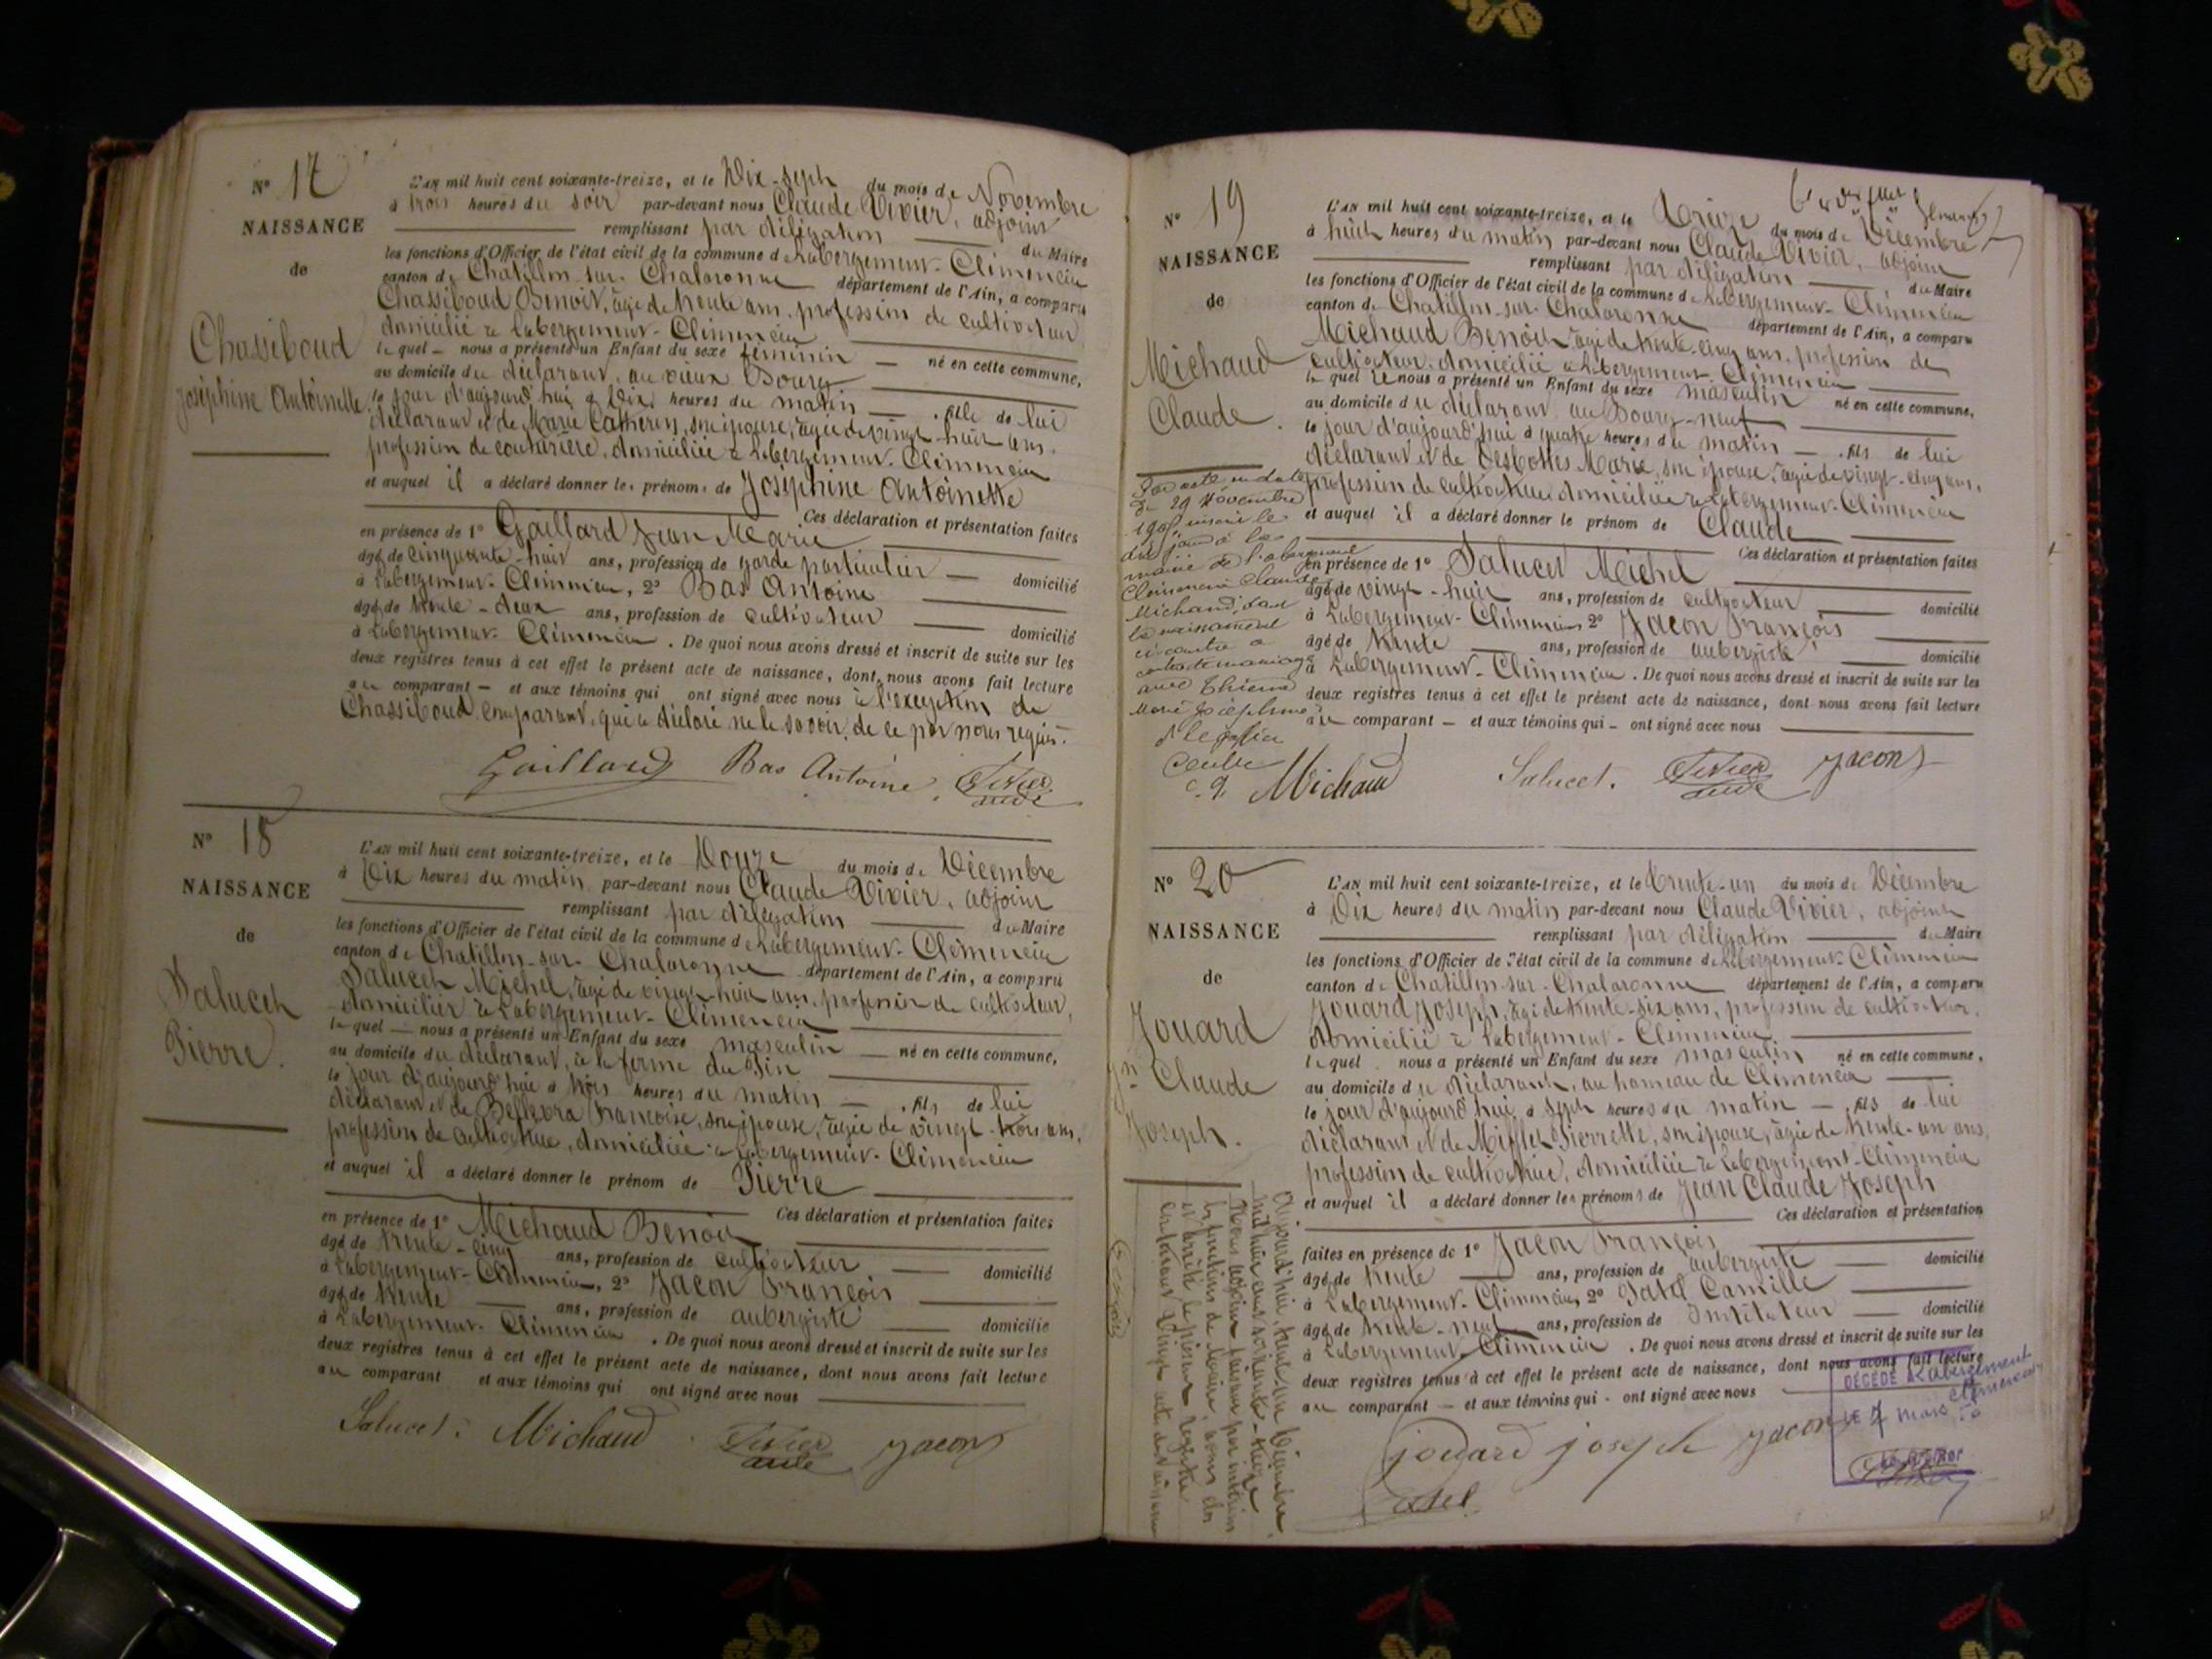 N° 17
NAISSANCE
de
Chassiboud
Joséphine Antoinette
L'AN mil huit cent soixante-treize, et le Dix-sept du mois de Novembre
à trois heures du soir par-devant nous Claude Vivier, adjoint
remplissant par délégation du Maire
les fonctions d'Officier de l'état civil de la commune de Labergement-Clémencia
canton de Chatillon-sur-Chalaronne département de l'Ain, a comparu
Chassiboud Benoit, âgé de trente ans, profession de cultivateur
domicilié à Labergement-Clémencia
lequel nous a présenté un Enfant du sexe féminin né en cette commune,
au domicile du déclarant, au vieux Bourg
le jour d'aujourd'hui à Dix heures du matin fille de lui
déclarant et de Marie Catherin, son épouse, âgée de vingt-huit ans,
profession de couturière, domiciliée à Labergement-Clémencia
et auquel il a déclaré donner les prénoms de Joséphine Antoinette
Ces déclaration et présentation faites
en présence de 1° Gaillard Jean Marie
âgé de cinquante-huit ans, profession de garde particulier domicilié
à Labergement-Clémencia, 2° Bas Antoine
âgé de trente-deux ans, profession de cultivateur domicilié
à Labergement-Clémencia. De quoi nous avons dressé et inscrit de suite sur les
deux registres tenus à cet effet le présent acte de naissance, dont nous avons fait lecture
au comparant et aux témoins qui ont signé avec nous à l'exception de
Chassiboud comparant, qui a déclaré ne le savoir, de ce par nous requis.
Gaillard Bas Antoine Vivier
N° 18
NAISSANCE
de
Salucet
Pierre.
L'AN mil huit cent soixante-treize, et le Douze du mois de Décembre
à Dix heures du matin par-devant nous Claude Vivier, adjoint
remplissant par délégation du Maire
les fonctions d'Officier de l'état civil de la commune de Labergement-Clémencia
canton de Chatillon-sur-Chalaronne département de l'Ain, a comparu
Salucet Michel, âgé de vingt-huit ans, profession de cultivateur,
domicilié à Labergement-Clémencia
lequel nous a présenté un Enfant du sexe masculin né en cette commune,
au domicile du déclarant, à la ferme du Pin
le jour d'aujourd'hui à trois heures du matin fils de lui
déclarant et de Bellevra Françoise, son épouse, âgée de vingt-trois ans,
profession de cultivatrice, domiciliée à Labergement-Clémencia
et auquel il a déclaré donner le prénom de Pierre
Ces déclaration et présentation faites
en présence de 1° Michaud Benoit
âgé de trente-cinq ans, profession de cultivateur domicilié
à Labergement-Clémencia, 2° Jacon François
âgé de trente ans, profession de aubergiste domicilié
à Labergement-Clémencia. De quoi nous avons dressé et inscrit de suite sur les
deux registres tenus à cet effet le présent acte de naissance, dont nous avons fait lecture
au comparant et aux témoins qui ont signé avec nous
Salucet. Michaud Vivier Jacon
N° 19
NAISSANCE
de
Michaud
Claude.
Par acte en date
du 29 Novembre
inscrit le
à la
mairie de l'abergement
Clémencia Claude
Michaud, dont
la naissance est
ci-contre a
contracté mariage
avec
Marie Joséphine
L'AN mil huit cent soixante-treize, et le Treize du mois de Décembre
à huit heures du matin par-devant nous Claude Vivier, adjoint
remplissant par délégation du Maire
les fonctions d'Officier de l'état civil de la commune de Labergement-Clémencia
canton de Chatillon-sur-Chalaronne département de l'Ain, a comparu
Michaud Benoit âgé de trente-cinq ans, profession de
cultivateur, domicilié à Labergement-Clémencia
lequel nous a présenté un Enfant du sexe masculin né en cette commune,
au domicile du déclarant au Bourg-neuf
le jour d'aujourd'hui à quatre heures du matin fils de lui
déclarant et de Desbottes Marie, son épouse, âgée de vingt-cinq ans,
profession de cultivatrice domiciliée à Labergement-Clémencia
et auquel il a déclaré donner le prénom de Claude
Ces déclaration et présentation faites
en présence de 1° Salucet Michel
âgé de vingt-huit ans, profession de cultivateur domicilié
à Labergement-Clémencia 2° Jacon François
âgé de trente ans, profession de aubergiste domicilié
à Labergement-Clémencia. De quoi nous avons dressé et inscrit de suite sur les
deux registres tenus à cet effet le présent acte de naissance, dont nous avons fait lecture
au comparant et aux témoins qui ont signé avec nous
Michaud Salucet. Vivier Jacon
N° 20
NAISSANCE
de
Jouard
Jn Claude
Joseph.
L'AN mil huit cent soixante-treize, et le trente-un du mois de Décembre
à Dix heures du matin par-devant nous Claude Vivier, adjoint
remplissant par délégation du Maire
les fonctions d'Officier de l'état civil de la commune de Labergement-Clémencia
canton de Chatillon-sur-Chalaronne département de l'Ain, a comparu
Jouard Joseph, âgé de trente-six ans, profession de cultivateur,
domicilié à Labergement-Clémencia
lequel nous a présenté un Enfant du sexe masculin né en cette commune,
au domicile du déclarant, au hameau de Clémencia
le jour d'aujourd'hui à sept heures du matin fils de lui
déclarant et de Mifflet Pierrette, son épouse, âgée de trente-un ans,
profession de cultivatrice, domiciliée à Labergement-Clémencia
et auquel il a déclaré donner les prénoms de Jean Claude Joseph
Ces déclaration et présentation
faites en présence de 1° Jacon François
âgé de trente ans, profession de aubergiste domicilié
à Labergement-Clémencia, 2° Patel Camille
âgé de trente-neuf ans, profession de Instituteur domicilié
à Labergement-Clémencia. De quoi nous avons dressé et inscrit de suite sur les
deux registres tenus à cet effet le présent acte de naissance, dont nous avons fait lecture
au comparant et aux témoins qui ont signé avec nous
jouard joseph Jacon
Patel
DÉCÉDÉ à Labergement
Clémencia
LE 7 mars
Aujourd'hui, trente-un Décembre,
mil huit cent soixante-treize
Nous adjoint faisant par intérim
les fonctions de Maire, avons clos
et arrêté le présent registre
contenant Vingt actes de naissance